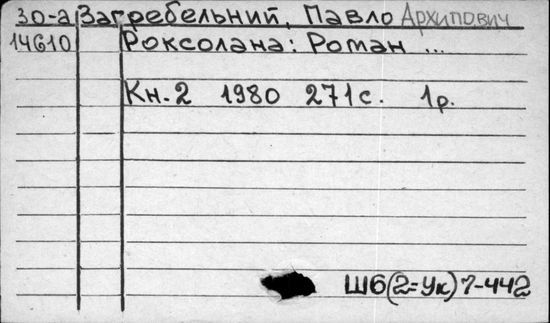 30-а Загребельний, Павло Архипович
14610 Роксолана: Роман ...
Кн.2 1980 271с. 1р.
Ш6(2=Ук)7-442